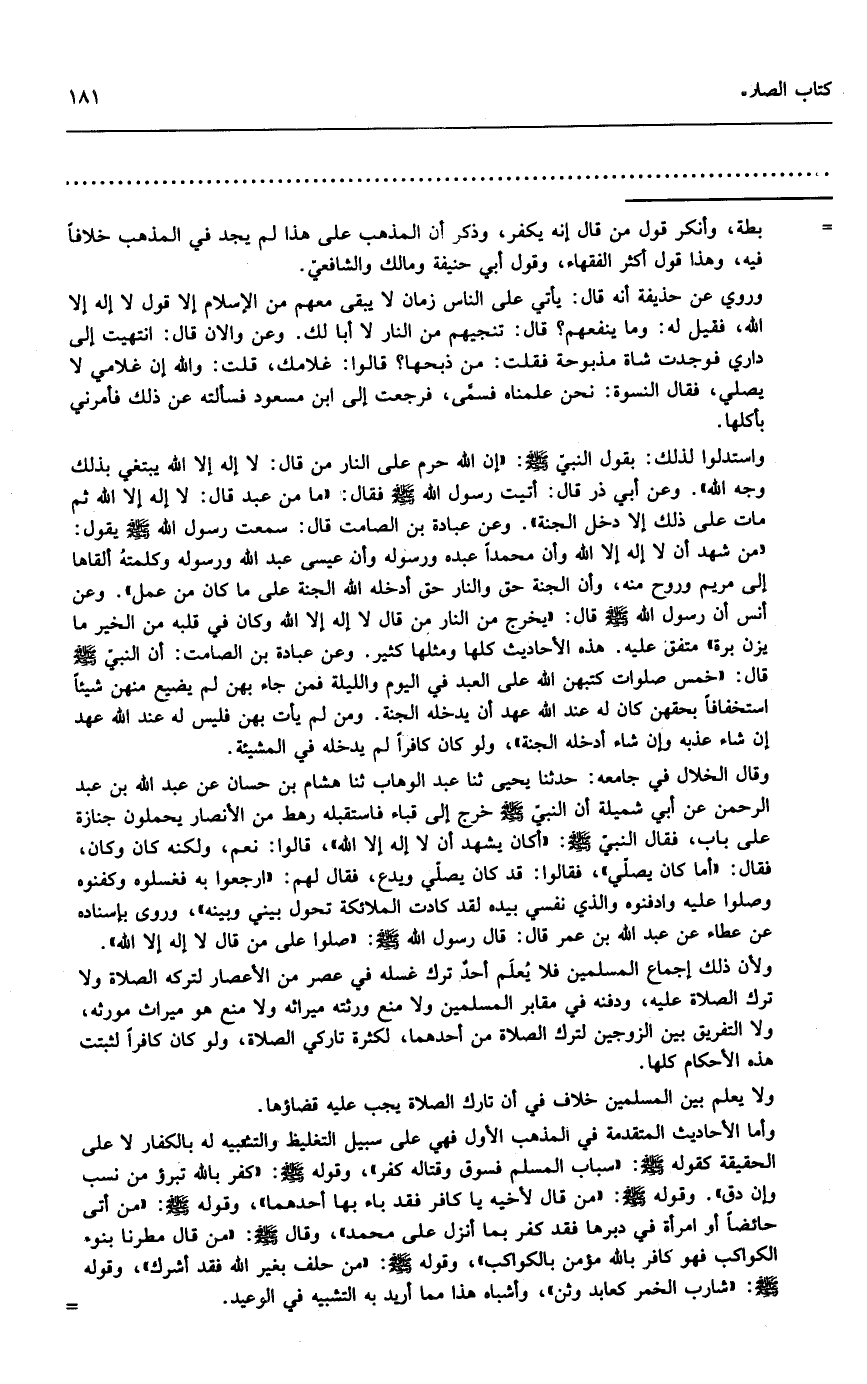 كتاب الصلاة
١٨١
= بطة، وأنكر قول من قال إنه يكفر، وذكر أن المذهب على هذا لم يجد في المذهب خلافاً
فيه، وهذا قول أكثر الفقهاء، وقول أبي حنيفة ومالك والشافعيّ.
وروي عن حذيفة أنه قال: يأتي على الناس زمان لا يبقى معهم من الإسلام إلا قول لا إله إلا
الله، فقيل له: وما ينفعهم؟ قال: تنجيهم من النار لا أبا لك. وعن والان قال: انتهيت إلى
داري فوجدت شاة مذبوحة فقلت: من ذبحها؟ قالوا: غلامك، قلت: والله إن غلامي لا
يصلي، فقال النسوة: نحن علمناه فسمَّى، فرجعت إلى ابن مسعود فسألته عن ذلك فأمرني
بأكلها.
واستدلوا لذلك: بقول النبيّ ﷺ: «إن الله حرم على النار من قال: لا إله إلا الله يبتغي بذلك
وجه الله». وعن أبي ذر قال: أتيت رسول الله ﷺ فقال: «ما من عبد قال: لا إله إلا الله ثم
مات على ذلك إلا دخل الجنة». وعن عبادة بن الصامت قال: سمعت رسول الله ﷺ يقول:
«من شهد أن لا إله إلا الله وأن محمداً عبده ورسوله وأن عيسى عبد الله ورسوله وكلمتهُ ألقاها
إلى مريم وروح منه، وأن الجنة حق والنار حق أدخله الله الجنة على ما كان من عمل». وعن
أنس أن رسول الله ﷺ قال: «يخرج من النار من قال لا إله إلا الله وكان في قلبه من الخير ما
يزن برة» متفق عليه. هذه الأحاديث كلها ومثلها كثير. وعن عبادة بن الصامت: أن النبيّ ﷺ
قال: «خمس صلوات كتبهن الله على العبد في اليوم والليلة فمن جاء بهن لم يضيع منهن شيئاً
استخفافاً بحقهن كان له عند الله عهد أن يدخله الجنة. ومن لم يأت بهن فليس له عند الله عهد
إن شاء عذبه وإن شاء أدخله الجنة»، ولو كان كافراً لم يدخله في المشيئة.
وقال الخلال في جامعه: حدثنا يحيى ثنا عبد الوهاب ثنا هشام بن حسان عن عبد الله بن عبد
الرحمن عن أبي شميلة أن النبيّ ﷺ خرج إلى قباء فاستقبله رهط من الأنصار يحملون جنازة
على باب، فقال النبيّ ﷺ: «أكان يشهد أن لا إله إلا الله»، قالوا: نعم، ولكنه كان وكان،
فقال: «أما كان يصلّي»، فقالوا: قد كان يصلّي ويدع، فقال لهم: «ارجعوا به فغسلوه وكفنوه
وصلوا عليه وادفنوه والذي نفسي بيده لقد كادت الملائكة تحول بيني وبينه»، وروى بإسناده
عن عطاء عن عبد الله بن عمر قال: قال رسول الله ﷺ: «صلوا على من قال لا إله إلا الله».
ولأن ذلك إجماع المسلمين فلا يُعلَم أحدٌ ترك غسله في عصر من الأعصار لتركه الصلاة ولا
ترك الصلاة عليه، ودفنه في مقابر المسلمين ولا منع ورثته ميراثه ولا منع هو ميراث مورثه،
ولا التفريق بين الزوجين لترك الصلاة من أحدهما، لكثرة تاركي الصلاة، ولو كان كافراً لثبتت
هذه الأحكام كلها.
ولا يعلم بين المسلمين خلاف في أن تارك الصلاة يجب عليه قضاؤها.
وأما الأحاديث المتقدمة في المذهب الأول فهي على سبيل التغليظ والتشبيه له بالكفار لا على
الحقيقة كقوله ﷺ: «سباب المسلم فسوق وقتاله كفر»، وقوله ﷺ: «كفر بالله تبرؤ من نسب
وإن دق». وقوله ﷺ: «من قال لأخيه يا كافر فقد باء بها أحدهما»، وقوله ﷺ: «من أتى
حائضاً أو امرأة في دبرها فقد كفر بما أنزل على محمد»، وقال ﷺ: «من قال مطرنا بنوء
الكواكب فهو كافر بالله مؤمن بالكواكب»، وقوله ﷺ: «من حلف بغير الله فقد أشرك»، وقوله
ﷺ: «شارب الخمر كعابد وثن»، وأشباه هذا مما أريد به التشبيه في الوعيد. =